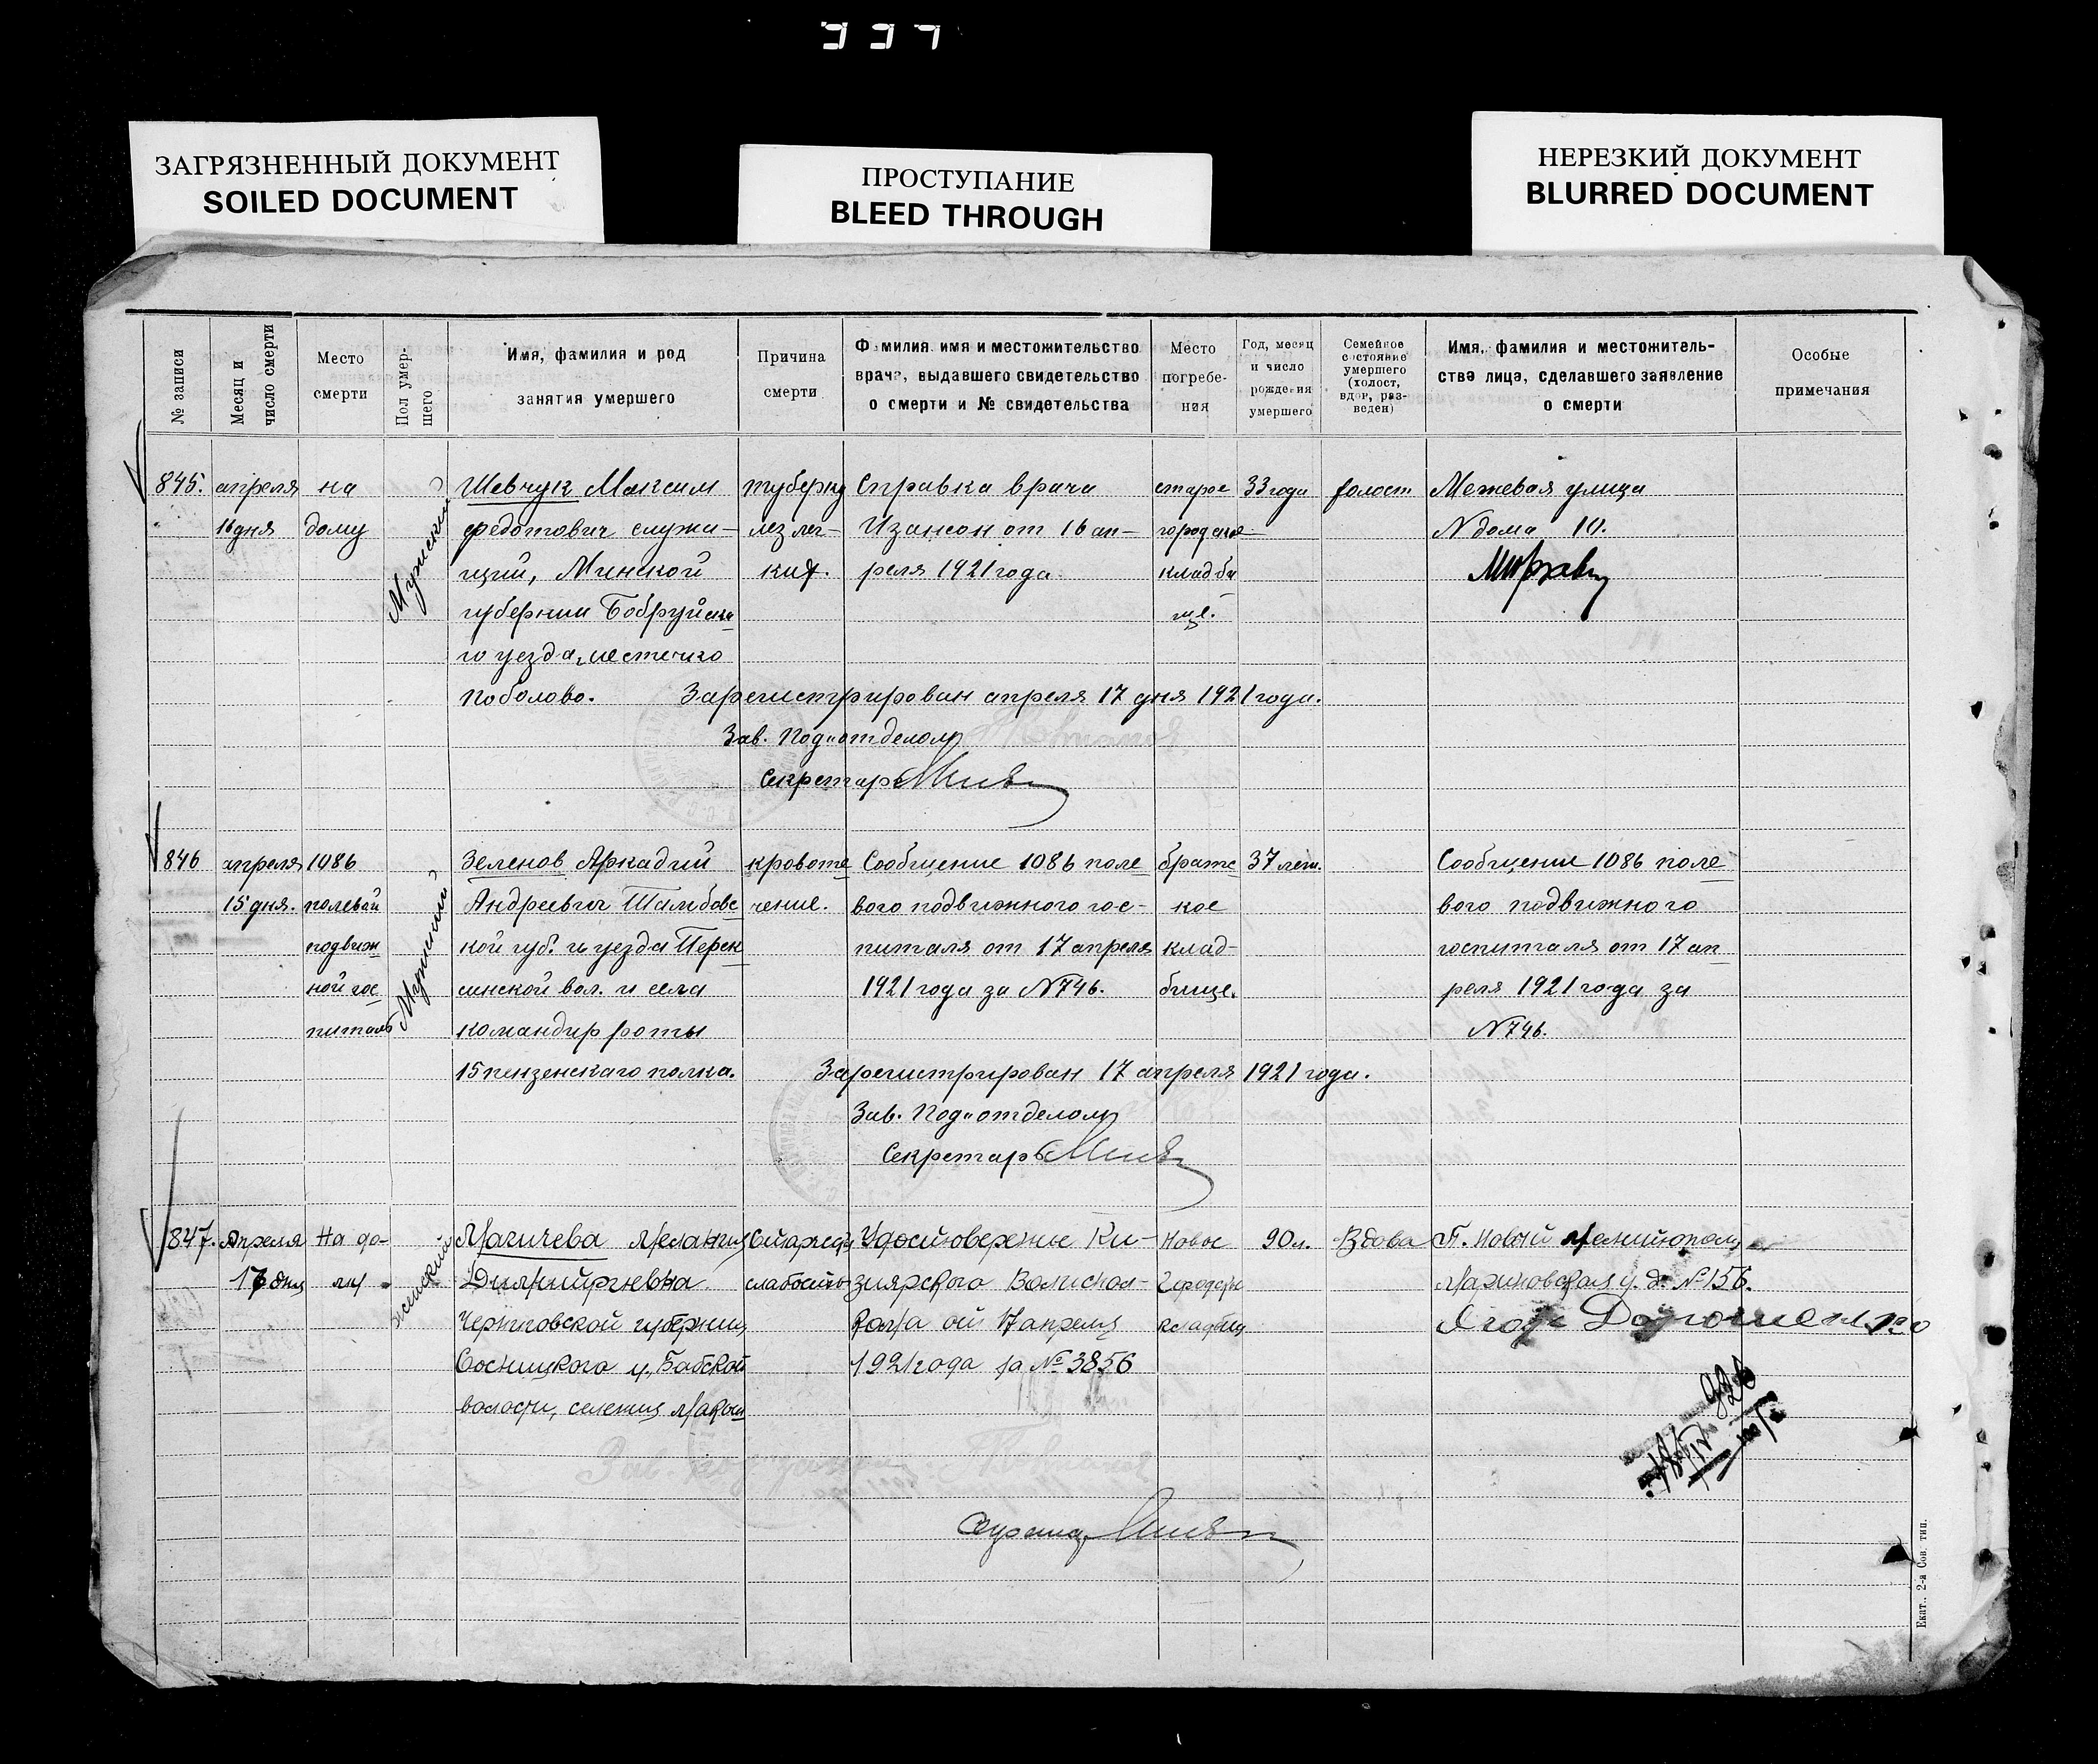 337
ЗАГРЯЗНЕННЫЙ ДОКУМЕНТ
SOILED DOCUMENT
ПРОСТУПАНИЕ
BLEED THROUGH
НЕРЕЗКИЙ ДОКУМЕНТ
BLURRED DOCUMENT
№ записи
Месяц и
число смерти
Место
смерти
Пол умер-
шего
Имя, фамилия и род
занятия умершего
Причина
смерти
Фамилия имя и местожительство
врача, выдавшего свидетельство
о смерти и № свидетельства
Место
погребе-
ния
Год, месяц
и число
рождения
умершего
Семейное
состояние
умершего
(холост,
вдов, раз-
веден)
Имя, фамилия и местожитель-
ства лица, сделавшего заявление
о смерти
Особые
примечания
845.
апреля
16 дня
на
дому
Мужской
Шевчук Максим
Федотович служа-
щий, Минской
губернии Бобруйска
го уезда, местечко
Поболово.
туберку
лез лег-
ких.
Справка врача
Изансон от 16 ап-
реля 1921 года.
старое
городское
кладби
ще.
33 года
холост
Межевая улица
N дома 10.
Зарегистрирован апреля 17 дня 1921 года.
Зав. Под"отделом
Секретарь
846
апреля
15 дня.
1086
полевой
подвиж
ной гос
питаль
Мужской
Зеленов Аркадий
Андреевич Тамбовс
кой губ. и уезда Перк
синской вол. и села
командир роты
15 пензенскаго полка.
кровоте
чение.
Сообщение 1086 поле
вого подвижного гос-
питаля от 17 апреля
1921 года за N 746.
братс
кое
клад-
бище.
37 лет.
Сообщение 1086 поле
вого подвижного
госпиталя от 17 ап
реля 1921 года за
N 746.
Зарегистрирован 17 апреля 1921 года.
Зав. Под"отделом
Секретарь
847.
Апреля
17 дня
На до-
му
женский
Магичева Мелания
Димитриевна
Черниговской губернии,
Сосницкого у., Бабской
волости, селения
Старческая
слабость
Удостоверение Ки-
зиярского Волиспол-
кома от 17 апреля
1921 года за № 3856
Новое
городск
кладбищ
90 л.
Вдова
П. Новый Мелитополь
Мариновская у. д. № 156.
Дорошенко
Зав.
Екат., 2-я Сов. тип.